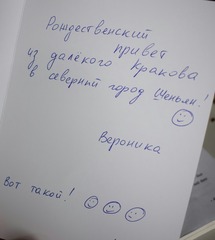 Рождественский
привет
из далёкого Кракова
в северный город Шеньян!
Вероника
Вот такой!